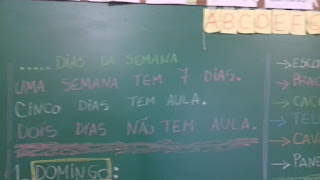 A B C D E F G
..... DIAS DA SEMANA
UMA SEMANA TEM 7 DIAS.
CINCO DIAS TEM AULA.
DOIS DIAS NÃO TEM AULA.
1. DOMINGO:
→ESCO
→CAC
→TEL
→CAV
→PANE